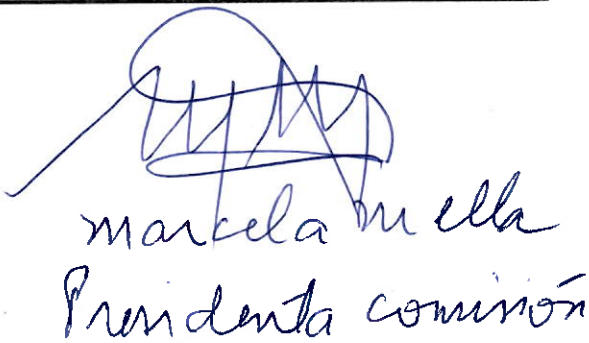 marcela mella
Presidenta comisión